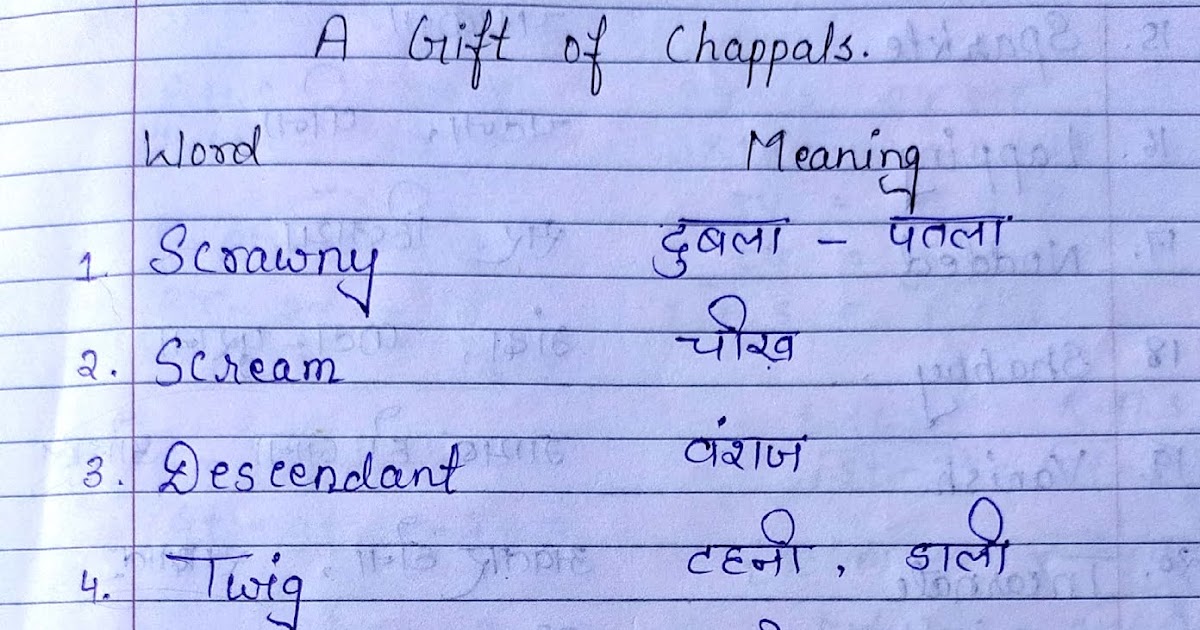 A Gift of Chappals.
Word Meaning
1. Scrawny दुबला - पतला
2. Scream चीख़
3. Descendant वंशज
4. Twig टहनी, डाली